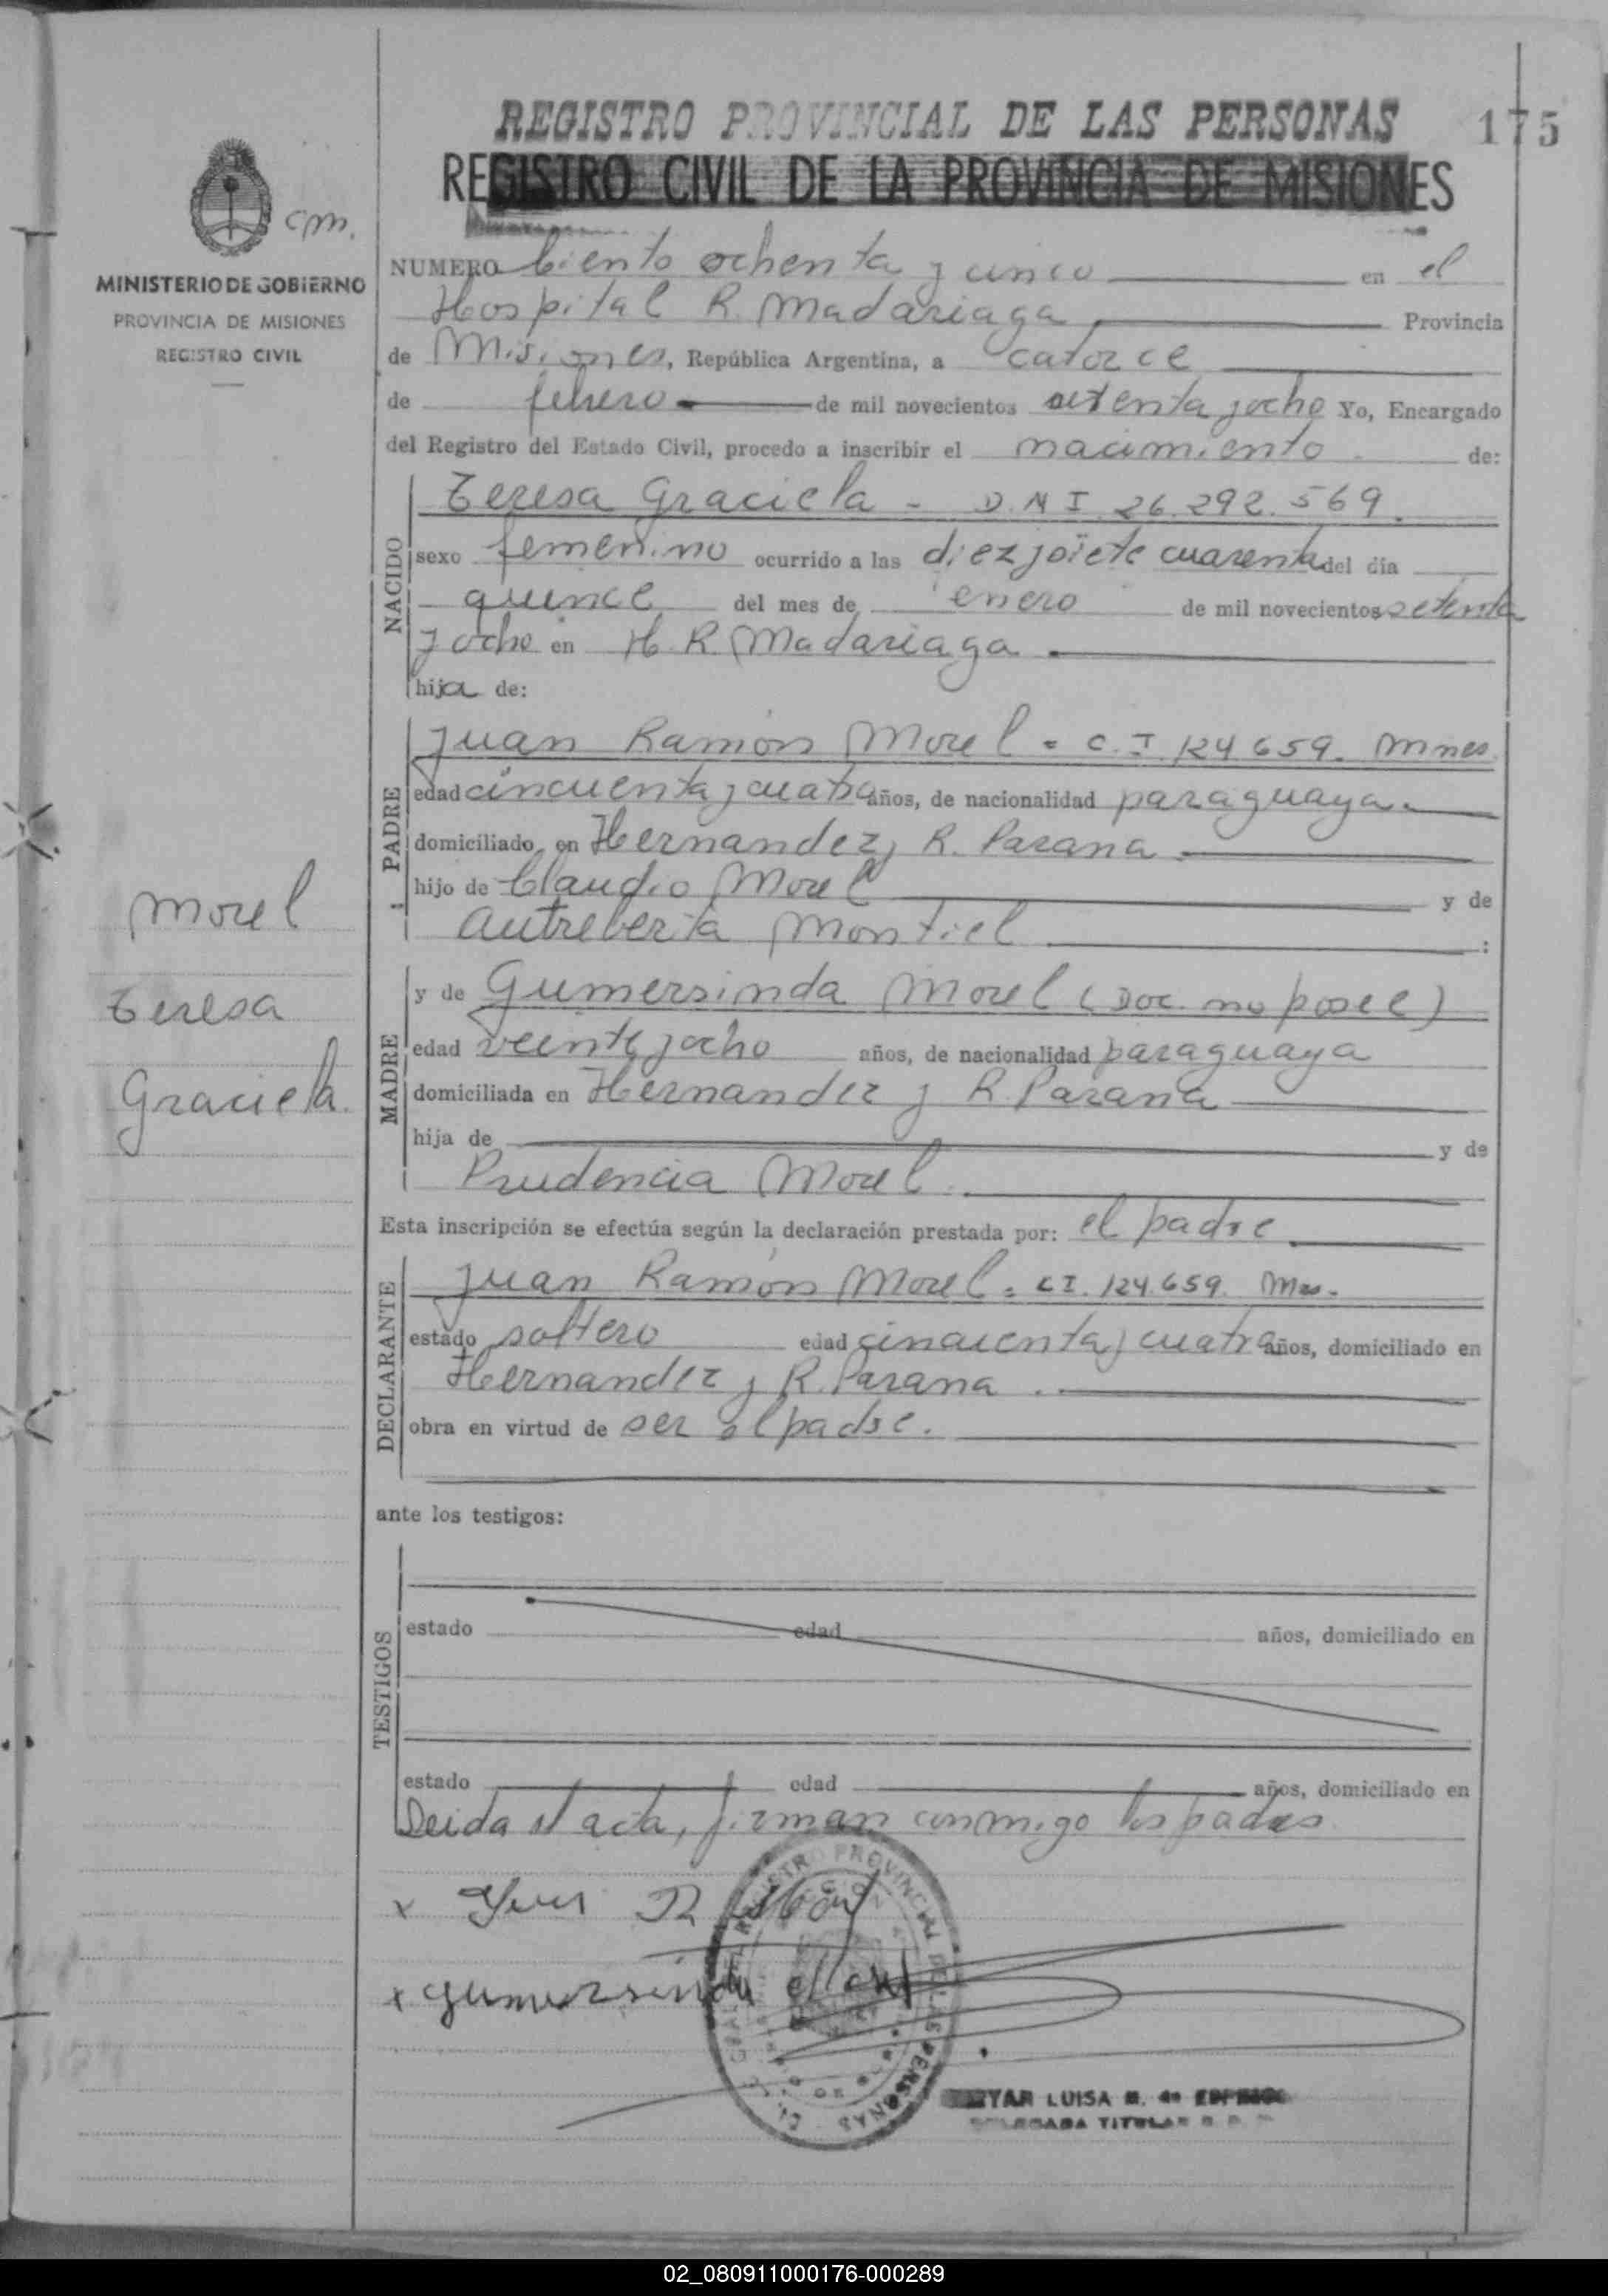 REGISTRO PROVINCIAL DE LAS PERSONAS 175
REGISTRO CIVIL DE LA PROVINCIA DE MISIONES
cm.
MINISTERIO DE GOBIERNO
PROVINCIA DE MISIONES
REGISTRO CIVIL
NUMERO Ciento ochenta y cinco en el
Hospital R. Madariaga, Provincia
de Misiones, República Argentina, a catorce
de febrero de mil novecientos setenta y ocho Yo, Encargado
del Registro del Estado Civil, procedo a inscribir el nacimiento de:
NACIDO
Teresa Graciela - D.N I 26.292.569.
sexo femenino ocurrido a las diez y siete cuarenta del día
quince del mes de enero de mil novecientos setenta
y ocho en H. R. Madariaga.
hija de:
PADRE
Juan Ramón Morel = C.I 124659. Mnes.
edad cincuenta y cuatro años, de nacionalidad paraguaya.
domiciliado en Hernandez y R. Parana
hijo de Claudio Morel y de
Autreberta Montiel :
Morel
Teresa
Graciela.
MADRE
y de Gumersinda Morel (Doc. no posee)
edad veinte y ocho años, de nacionalidad paraguaya
domiciliada en Hernandez y R. Parana
hija de y de
Prudencia Morel.
Esta inscripción se efectúa según la declaración prestada por: el padre.
DECLARANTE
Juan Ramón Morel = CI. 124.659. Mes.
estado soltero edad cincuenta y cuatro años, domiciliado en
Hernandez y R. Parana.
obra en virtud de ser el padre.
ante los testigos:
TESTIGOS
estado edad años, domiciliado en
estado edad años, domiciliado en
Leida el acta, firman conmigo los padres.
x Juan R
x gumersinda
REGISTRO PROVINCIAL DE LAS PERSONAS
LUISA
TITULAR
02_080911000176-000289